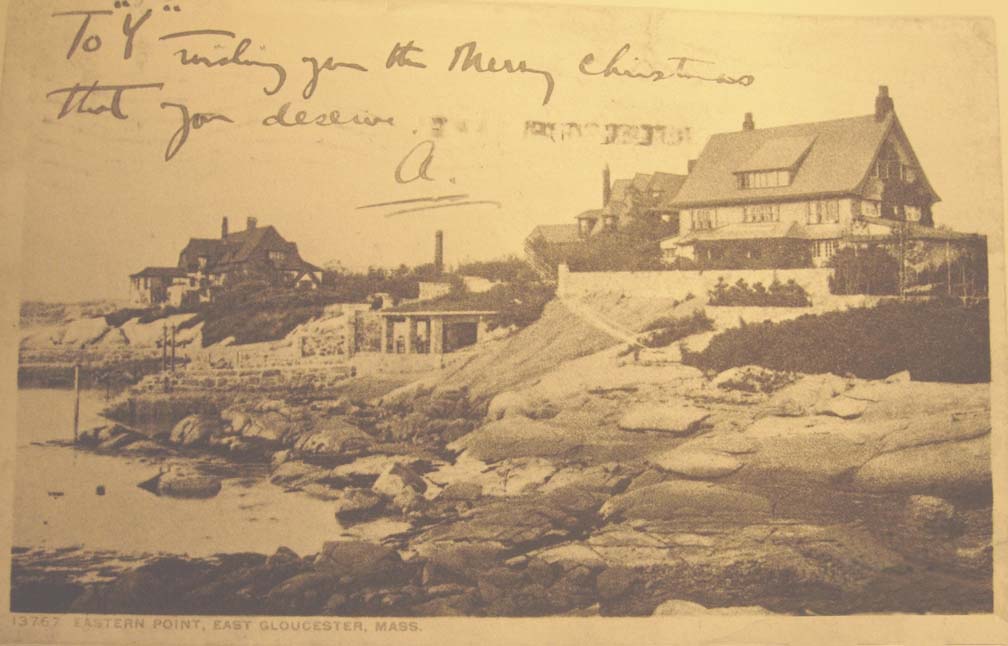 To "Y" wishing you the Merry Christmas
that you deserve.
A.
13767 EASTERN POINT, EAST GLOUCESTER, MASS.